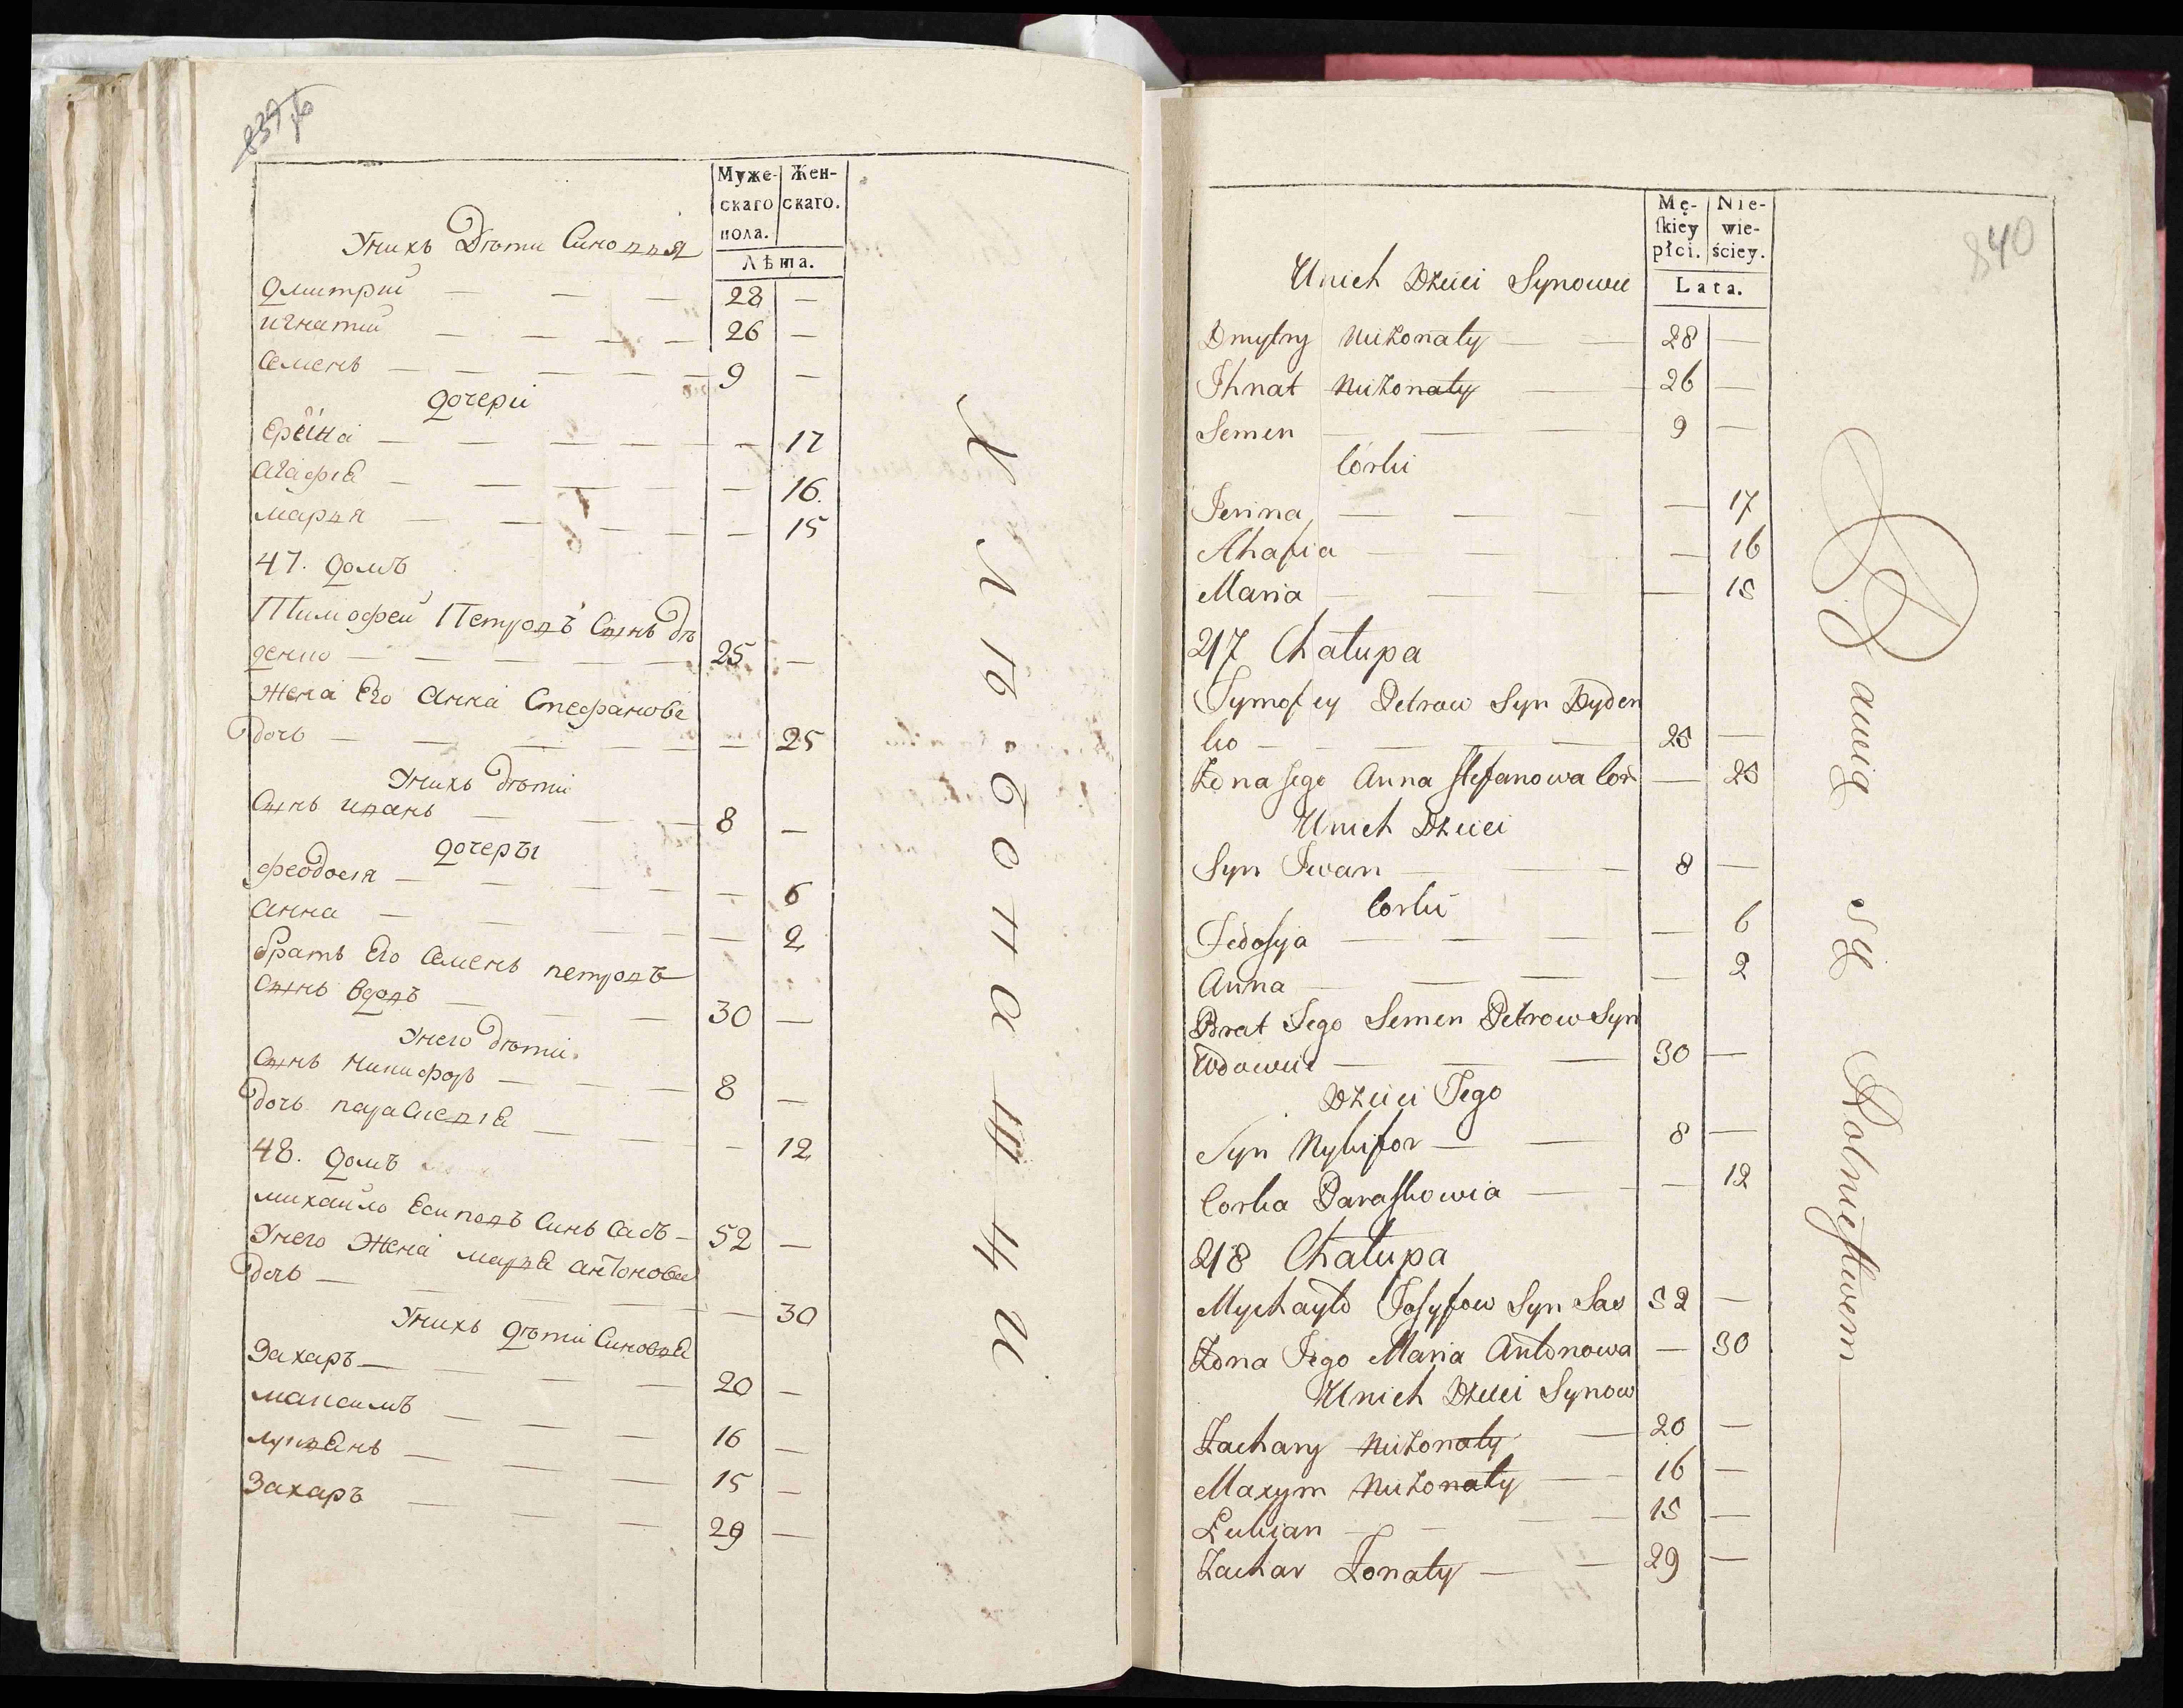 Муже-
скаго
пола.
Жен-
скаго.
Лѣта.
Уних Дѣти Синовья
Дмитрий — — — 28 —
игнатий — — — — 26 —
Семенъ — — — — — 9 —
дочери
— — — — — — 17
агафіа — — — — — 16.
марья — — — — — 15
47. домъ
Тимофей Петровъ Сынъ Ди
денко — — — — — 25 —
Жена Его Анна Стефанова
дочъ — — — — — — 25
Унихъ дѣти
Сынъ иванъ — — — 8 —
дочеры
феодосія — — — — — 6
анна — — — — — 2
братъ Его Семенъ петровъ
Сынъ вдовъ — — — 30 —
Унего дѣти
Сынъ Никифоръ — — — 8 —
дочъ параскевіа — — — — 12
48. домъ
михайло Есиповъ Синъ Савъ — 52 —
Унего Жена марья антонова
дочъ — — — — — 30
Унихъ дѣти Синовья
Захаръ — — — — 20 —
максимъ — — — 16 —
лукіанъ — — — 15 —
Захаръ — — — 29 —
Хлѣбопашци
840
Mę-
skiey
płci.
Nie-
wie-
ściey.
Lata.
Unich Dzieci Synowie
Dmytry Nieżonaty — — 28 —
Ihnat Nieżonaty — 26 —
Semen — — — 9 —
Córki
Jerina — — — — 17
Ahafia — — — — 16
Maria — — — — 15
217 Chałupa
Tymofiey Petrow Syn Dyden
ko — — — — 25 —
Żona Jego Anna Stefanowa Cor — 25
Unich Dzieci
Syn Iwan — — — 8 —
Corki
Fedosya — — — — 6
Anna — — — — 2
Brat Jego Semen Petrow Syn
Wdowiec — — — 30 —
Dzieci Jego
Syn Nykifor — — 8 —
Corka Paraskowia — — — 12
218 Chałupa
Mychayło Josyfow Syn Sas 52 —
Żona Jego Maria Antonowa — 30
Unich Dzieci Synow
Zachary Nieżonaty — 20 —
Maxym Nieżonaty — 16 —
Łukian — — — — 15 —
Zachar Żonaty — — 29 —
Bawią się Rolnictwem —